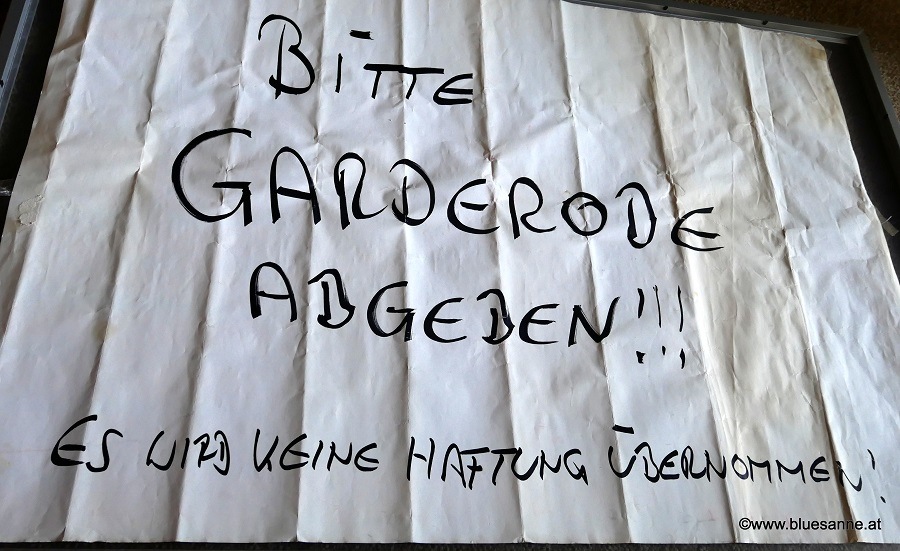 BITTE
GARDERODE
ABGEBEN!!!
ES WIRD KEINE HAFTUNG ÜBERNOMMEN!
©www.bluesanne.at